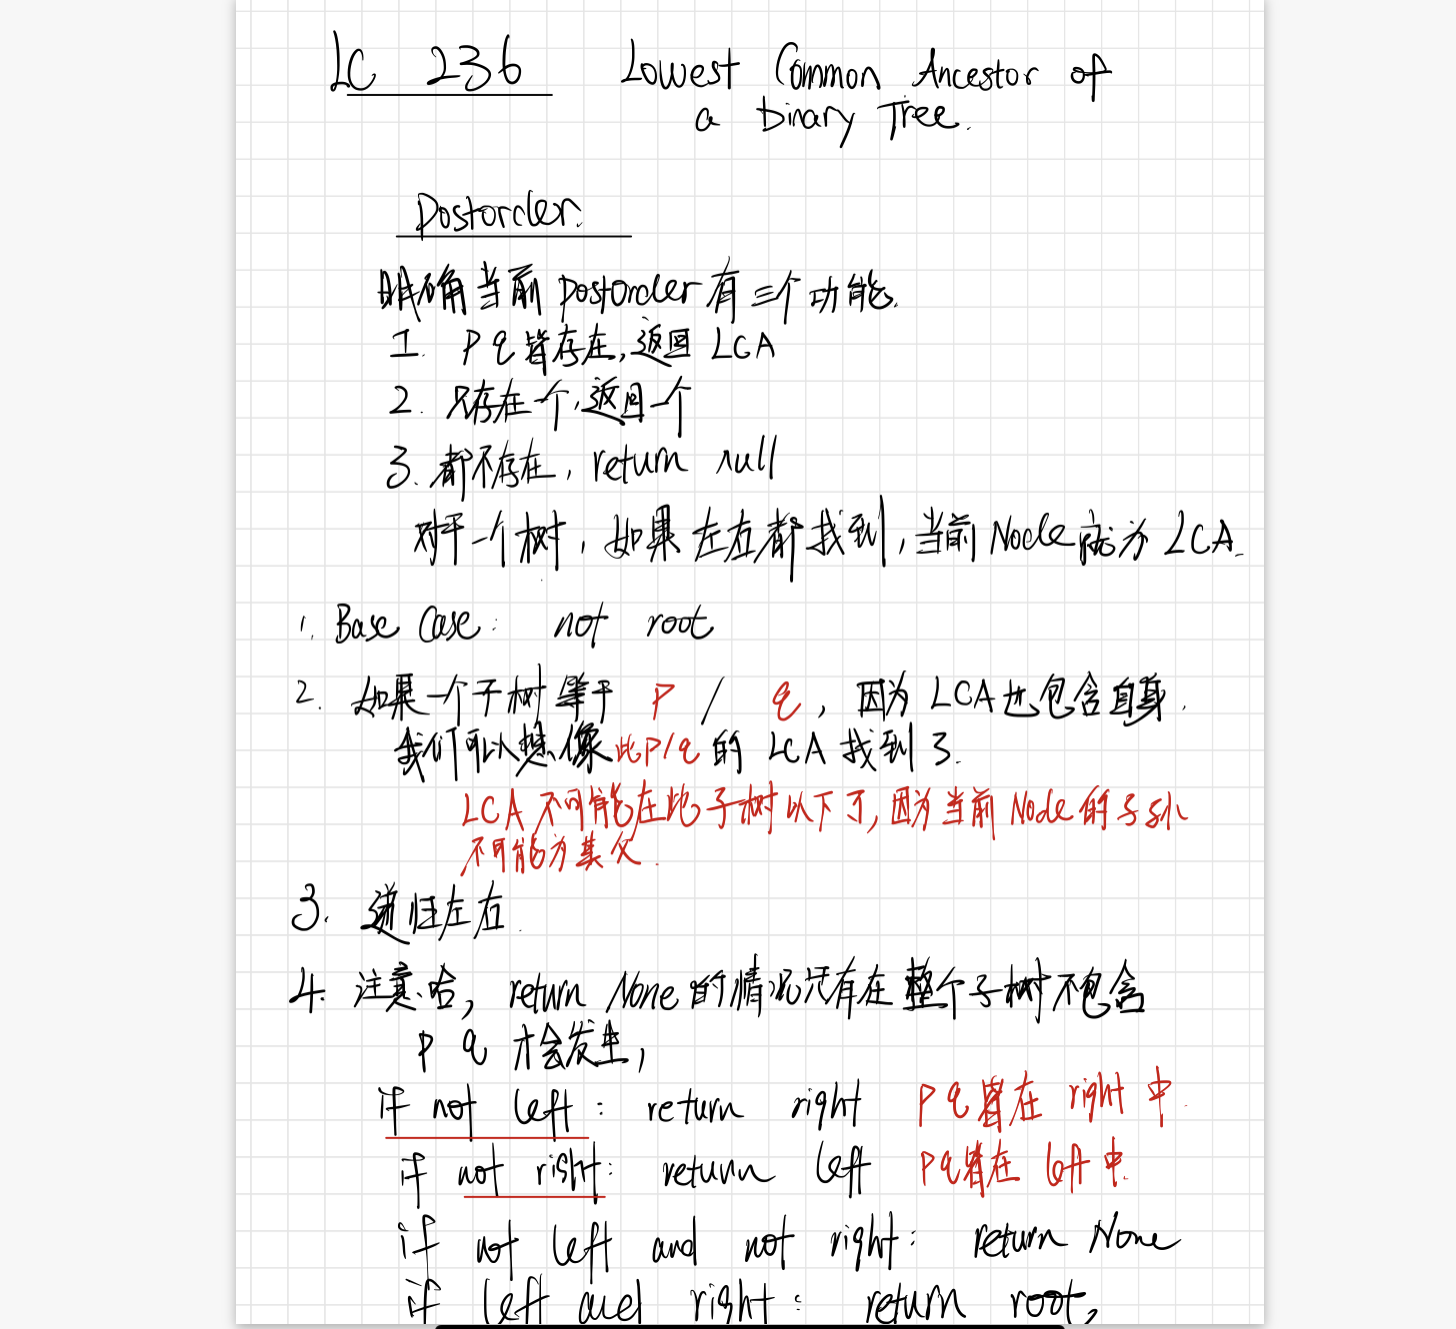 LC 236 Lowest Common Ancestor of
a Binary Tree.
Postorder:
明确当前 postorder 有三个功能.
1. P q 皆存在, 返回 LCA
2. 只存在一个, 返回一个
3. 都不存在, return null
对于一个树, 如果左右都找到, 当前 Node 就为 LCA.
1. Base Case: not root
2. 如果一个子树等于 P / q, 因为 LCA 也包含自身.
我们可以想像此P/q 的 LCA 找到了.
LCA 不可能在此子树以下了, 因为当前 Node 的子孙
不可能为其父.
3. 递归左右.
4. 注意哈, return None 的情况只有在整个子树不包含
P q 才会发生,
if not left: return right P q 皆在 right 中.
if not right: return left P q 皆在 left 中.
if not left and not right: return None
if left and right: return root,